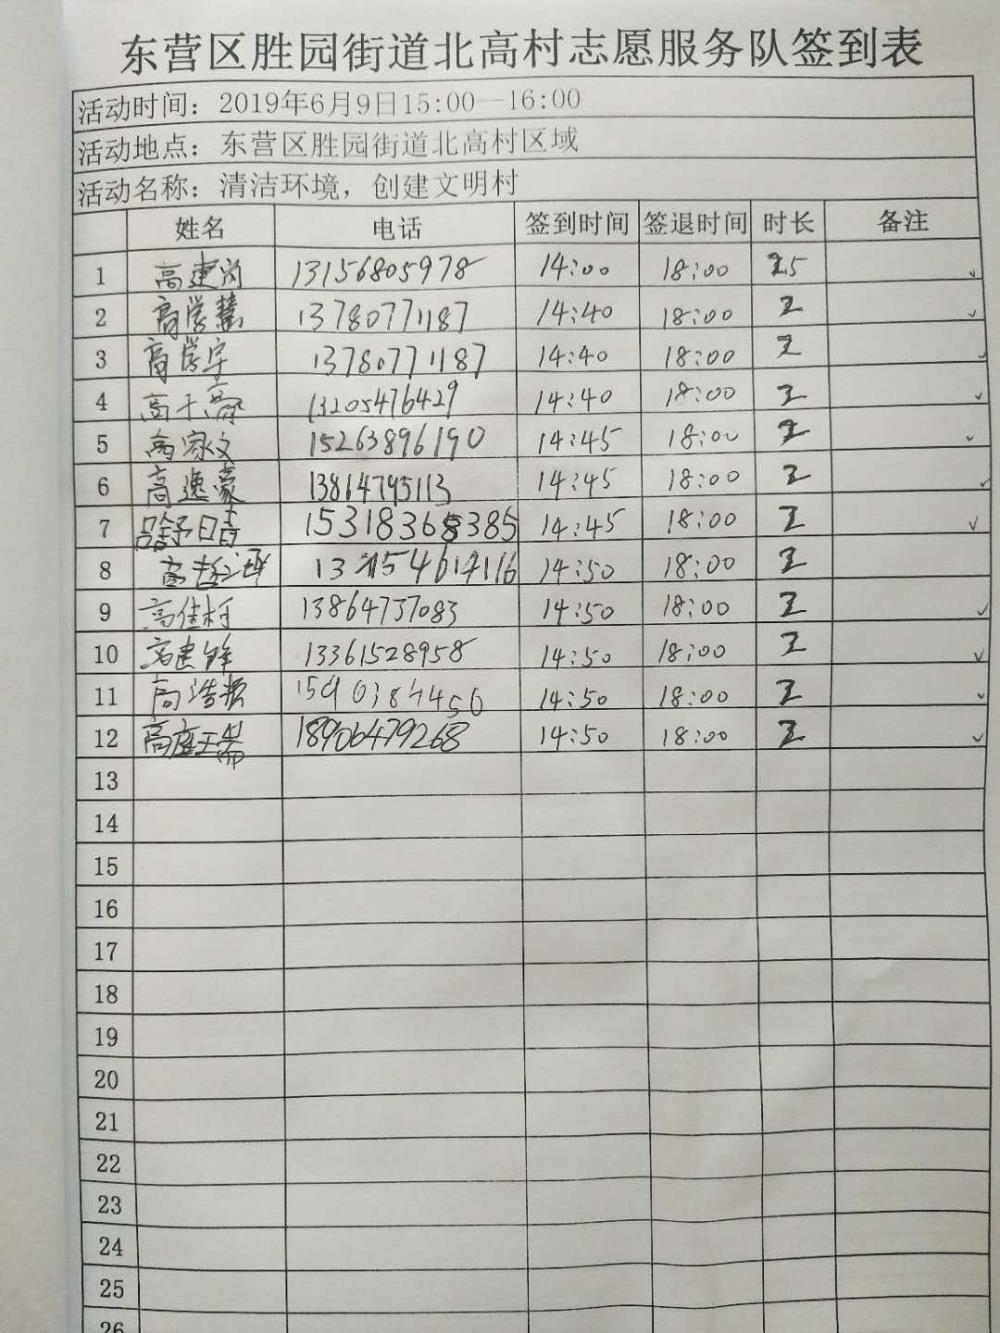 东营区胜园街道北高村志愿服务队签到表
活动时间：2019年6月9日15:00—16:00
活动地点：东营区胜园街道北高村区域
活动名称：清洁环境，创建文明村
姓名 电话 签到时间 签退时间 时长 备注
1 高建 13156805978 14:00 18:00 2.5 ✓
2 高学慧 13780771187 14:40 18:00 2 ✓
3 高学宇 13780771187 14:40 18:00 2 ✓
4 高千 13205476429 14:40 18:00 2 ✓
5 高家文 15263896190 14:45 18:00 2 ✓
6 高逸豪 13814795113 14:45 18:00 2 ✓
7 吕舒晴 15318368385 14:45 18:00 2 ✓
8 高 14:50 18:00 2
9 高佳枉 13864737083 14:50 18:00 2 ✓
10 高建锋 13361528958 14:50 18:00 2 ✓
11 高浩 14:50 18:00 2 ✓
12 高 18906479268 14:50 18:00 2 ✓
13
14
15
16
17
18
19
20
21
22
23
24
25
26